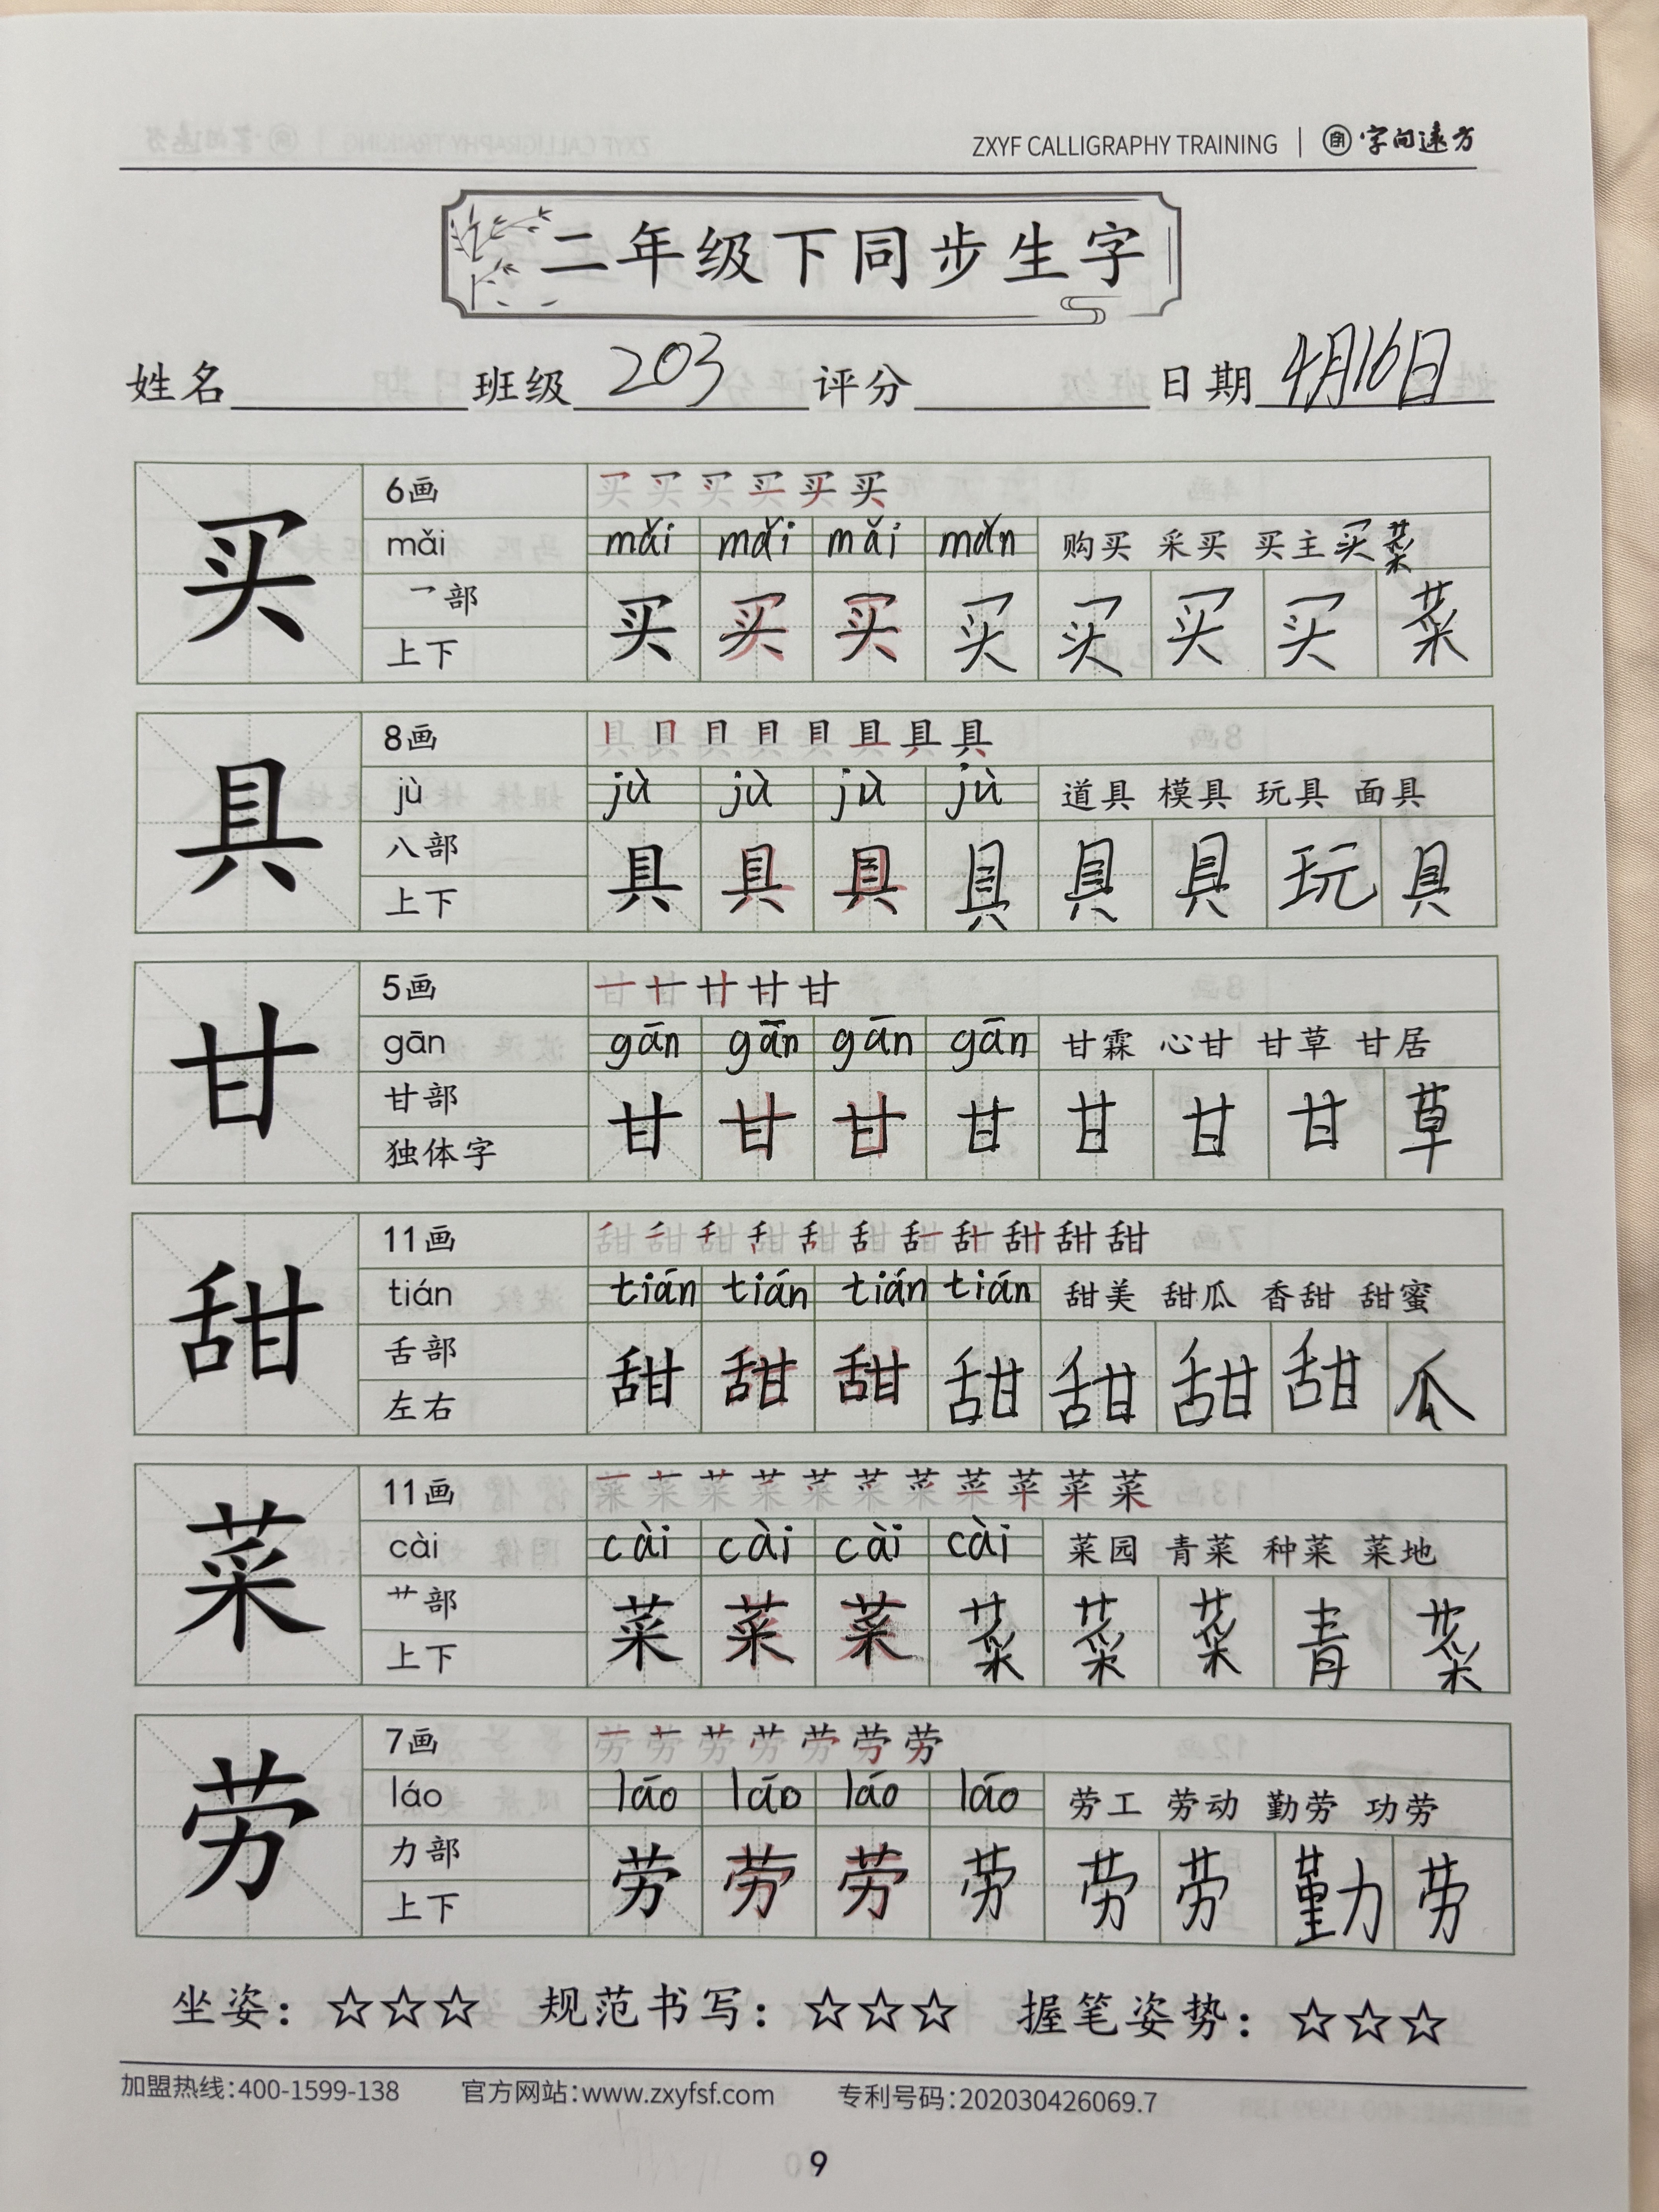 ZXYF CALLIGRAPHY TRAINING | 字向远方
二年级下同步生字
姓名 班级 203 评分 日期 4月16日
6画 买 买 买 买 买 买
买 mǎi mǎi mǎi mǎi mǎn 购买 采买 买主 买菜
乛部 买 买 买 买 买 买 买 菜
上下
8画 具 具 具 具 具 具 具 具
具 jù jù jù jù jù 道具 模具 玩具 面具
八部 具 具 具 具 具 具 玩 具
上下
5画 甘 甘 甘 甘 甘
甘 gān gān gān gān gān 甘霖 心甘 甘草 甘居
甘部 甘 甘 甘 甘 甘 甘 甘 草
独体字
11画 甜 甜 甜 甜 甜 甜 甜 甜 甜 甜 甜
甜 tián tián tián tián tián 甜美 甜瓜 香甜 甜蜜
舌部 甜 甜 甜 甜 甜 甜 甜 瓜
左右
11画 菜 菜 菜 菜 菜 菜 菜 菜 菜 菜 菜
菜 cài cài cài cài cài 菜园 青菜 种菜 菜地
艹部 菜 菜 菜 菜 菜 菜 青 菜
上下
7画 劳 劳 劳 劳 劳 劳 劳
劳 láo láo láo láo láo 劳工 劳动 勤劳 功劳
力部 劳 劳 劳 劳 劳 劳 勤 劳
上下
坐姿：☆☆☆ 规范书写：☆☆☆ 握笔姿势：☆☆☆
加盟热线：400-1599-138 官方网站：www.zxyfsf.com 专利号码：202030426069.7
9